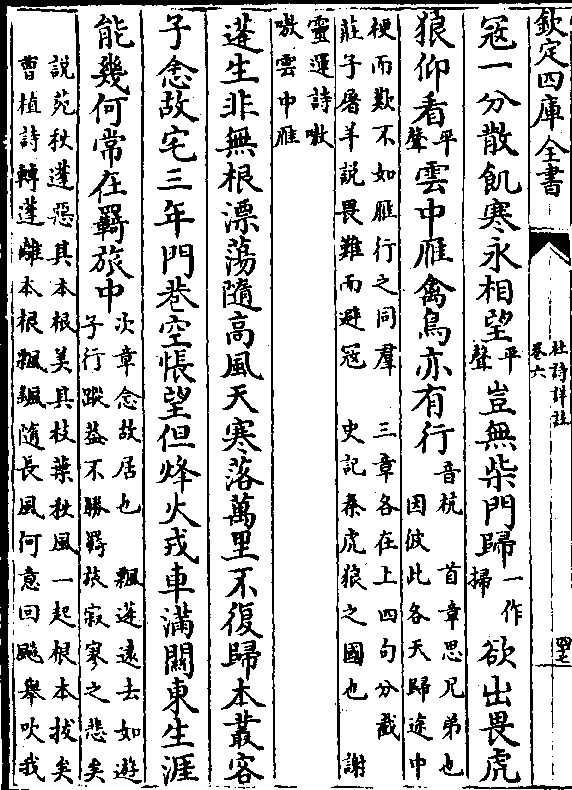 欽定四庫全書
杜詩詳註
卷六
四七
冦一分散飢寒永相望平聲豈無柴門歸一作掃欲出畏虎
狼仰看平聲雲中雁禽鳥亦有行音杭 首章思兄弟也
因彼此各天歸途中
梗而歎不如雁行之同羣 三章各在上四句分截
莊子屠羊説畏難而避冦 史記秦虎狼之國也 謝
靈運詩嗷
嗷雲中雁
蓬生非無根漂蕩隨高風天寒落萬里不復歸本叢客
子念故宅三年門巷空悵望但烽火戎車滿關東生涯
能幾何常在羇旅中次章念故居也 飄蓬遠去如遊
子行蹤益不勝羇旅寂寥之悲矣
説苑秋蓬惡其本根美其枝葉秋風一起根本拔矣
曹植詩轉蓬離本根飄颻隨長風何意回飈舉吹我